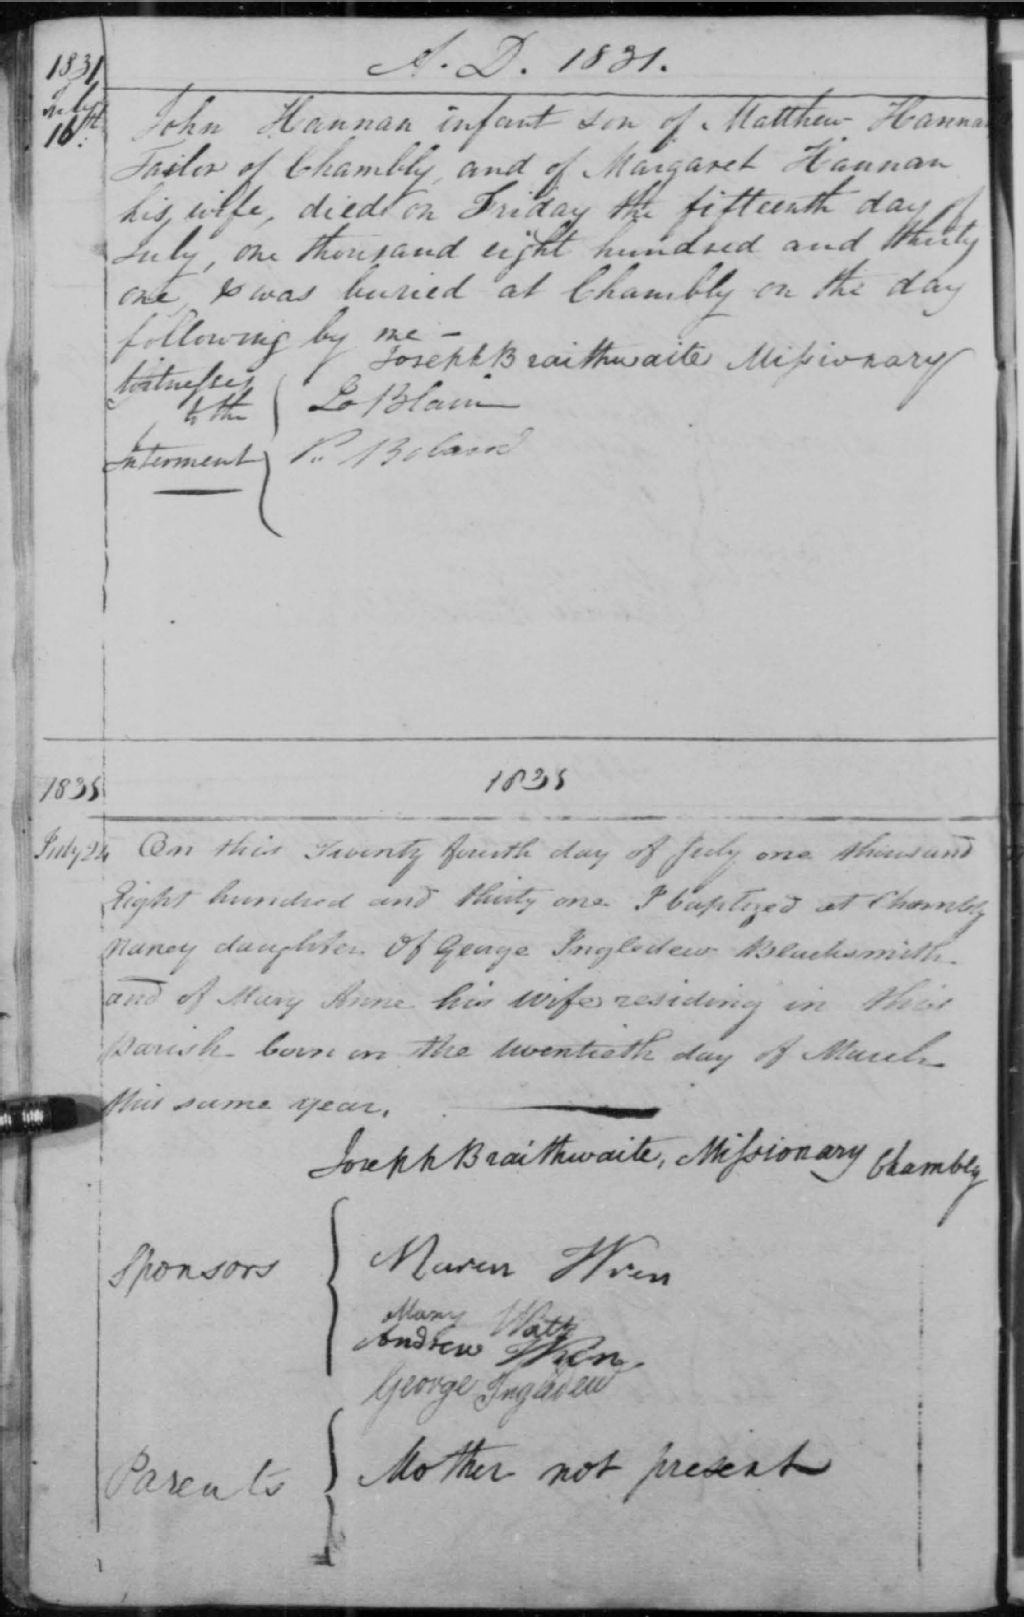 1831
A. D. 1831.
July
16th
John Hannan infant son of Matthew Hannan
Tailor of Chambly, and of Margaret Hannan
his wife, died on Friday the fifteenth day of
July, one thousand eight hundred and thirty
one, & was buried at Chambly on the day
following by me –
Joseph Braithwaite Missionary
Witnesses
to the
Interment
Blain
P. Boland
1835
1835
July 24
On this Twenty fourth day of July one thousand
Eight hundred and thirty one I baptized at Chambly
Nancy daughter of George Ingledew Blacksmith
and of Mary Anne his wife residing in this
Parish born on the twentieth day of March
this same year.
Joseph Braithwaite, Missionary Chambly
Sponsors
Wren
Mary Watt
Andrew Wren
George Ingledew
Parents
Mother not present